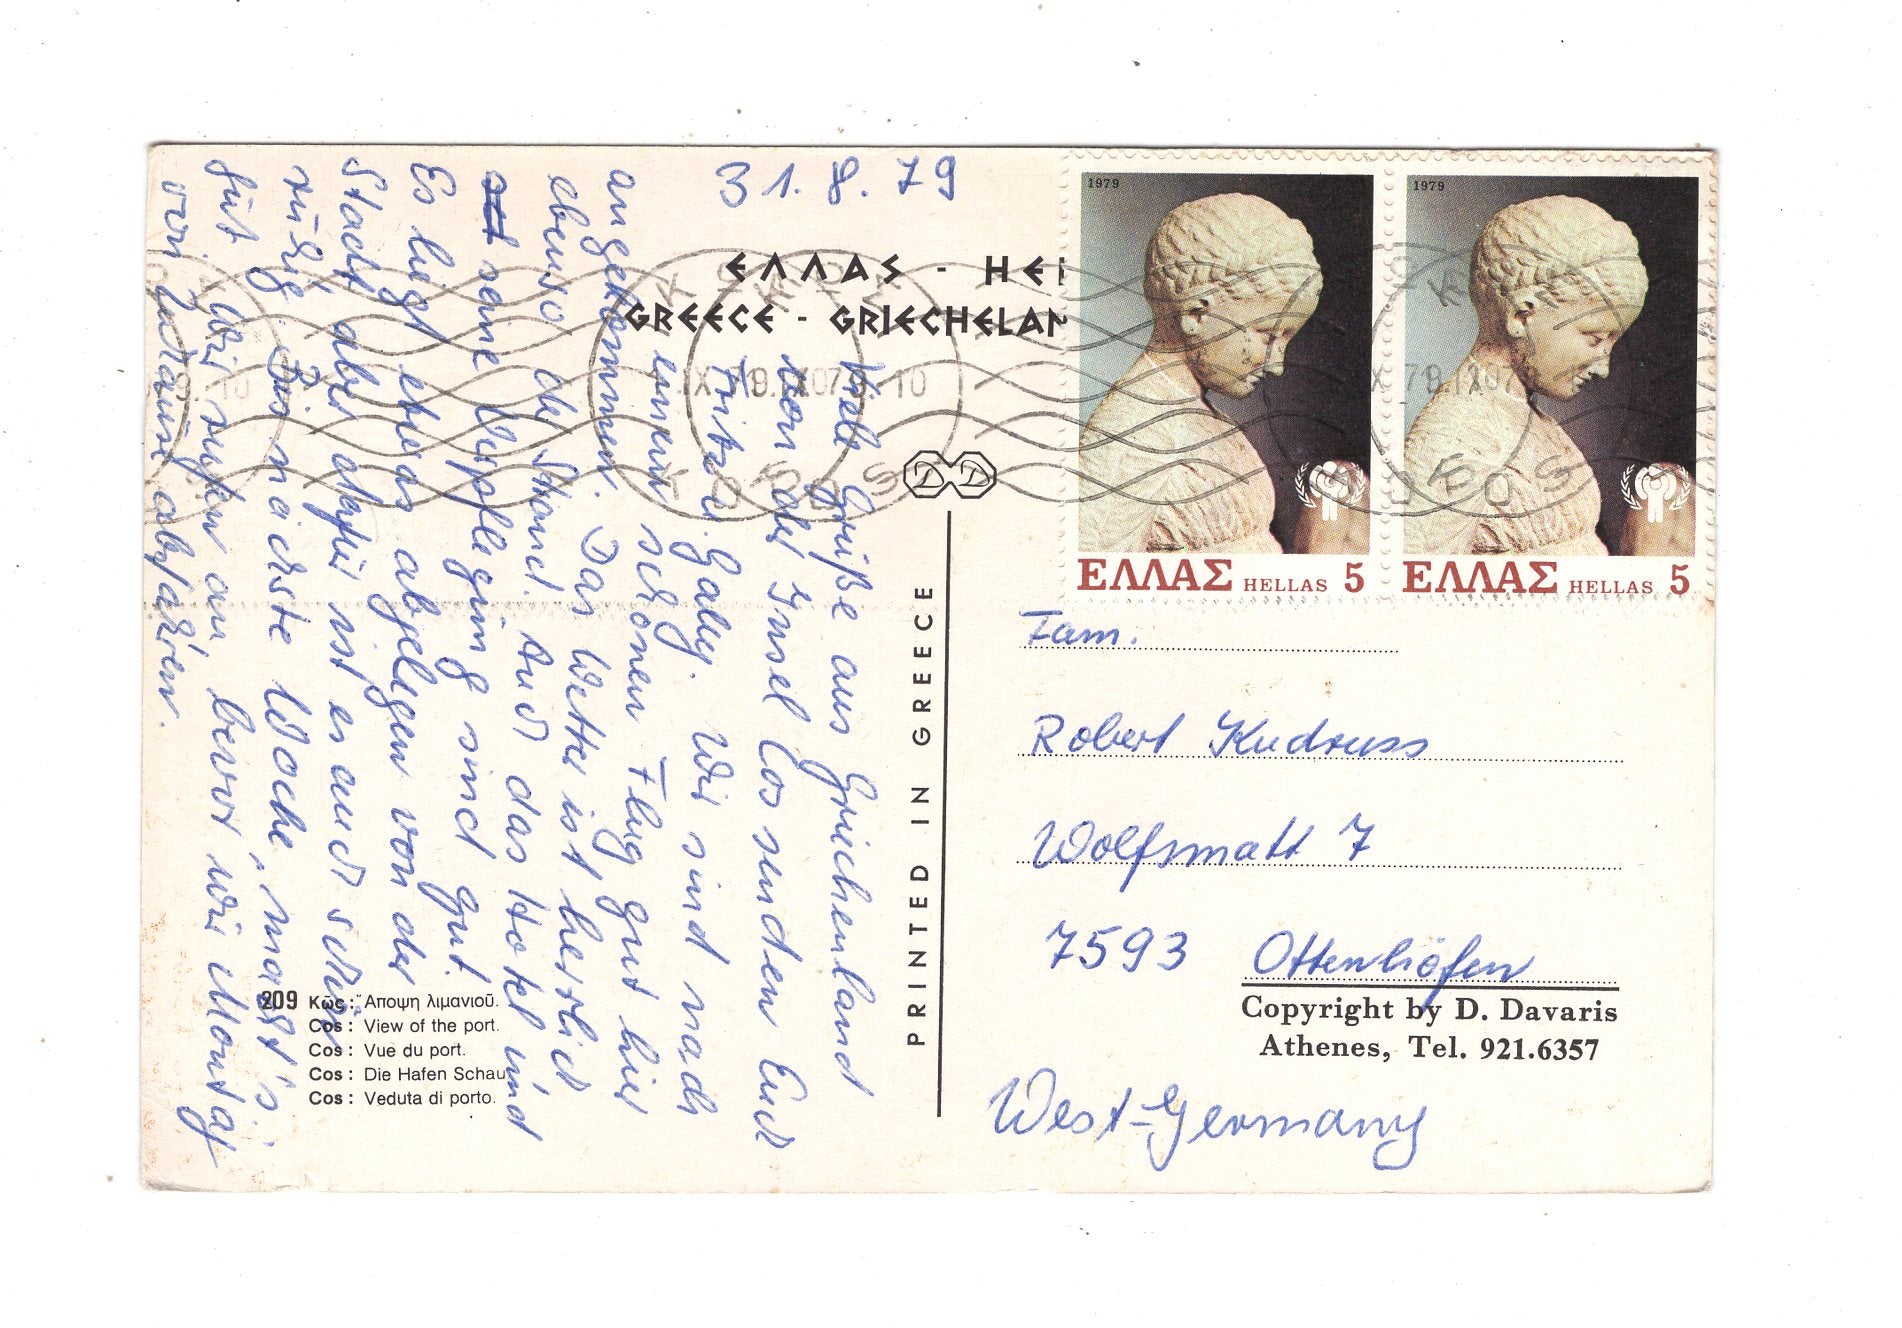 31.8.79
ΕΛΛΑΣ - HEL
GREECE - GRIECHELAN
Viele Grüße aus Griechenland
von der Insel Cos senden Euch
Fritz u. Gaby. Wir sind nach
einem schönen Flug gut hier
angekommen. Das Wetter ist herrlich
ebenso der Strand. Auch das Hotel und
seine Verpflegung sind gut.
Es liegt etwas abgelegen von der
Stadt aber dafür ist es auch schön
ruhig. Bis nächste Woche, macht's
gut. Wir rufen an bevor wir Montag
von Zuhause abfahren.
209 Κῶς: Ἄποψη λιμανιοῦ.
Cos: View of the port.
Cos: Vue du port.
Cos: Die Hafen Schau
Cos: Veduta di porto.
PRINTED IN GREECE
1979
ΕΛΛΑΣ HELLAS 5
1979
ΕΛΛΑΣ HELLAS 5
ΚΩΣ
KOS
Fam.
Robert Kudruss
Wolfsmatt 7
7593 Ottenhöfen
Copyright by D. Davaris
Athenes, Tel. 921.6357
West-Germany